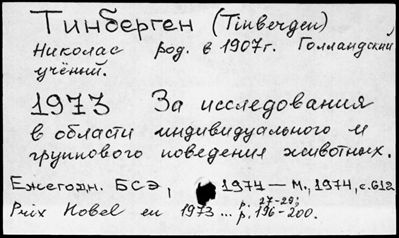 Тинберген (Tinbergen)
Николас род. в 1907г. Голландский
учёный.
1973 За исследования
в области индивидуального и
группового поведения животных.
Ежегодн. БСЭ, 1974 — М., 1974, с. 612
p. 27-29;
Prix Nobel en 1973 ... p. 196-200.